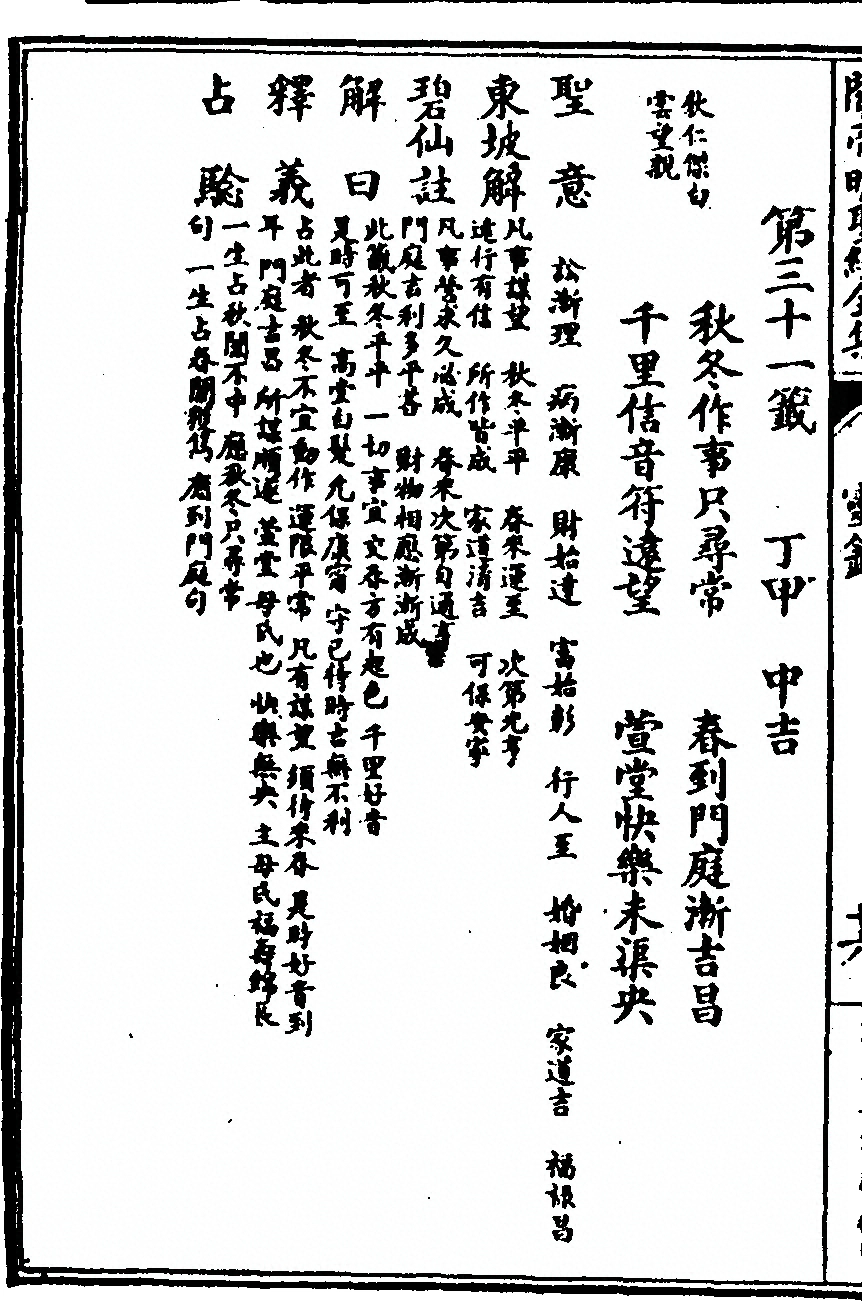 關帝明聖經全集 靈籤
第三十一籤 丁甲 中吉
狄仁傑白
雲望親
秋冬作事只尋常 春到門庭漸吉昌
千里信音符遠望 萱堂快樂未渠央
聖意 訟漸理 病漸康 財始達 富始彰 行人至 婚姻良 家道吉 福祿昌
東坡解 凡事謀望 秋冬平平 春來運至 次第光亨
遠行有信 所作皆成 家道清吉 可保安寧
碧仙註 凡事營求久必成 春來次第自通亨
門庭吉利多平善 財物相應漸漸成
解曰 此籤秋冬平平 一切事宜 交春方有起色 千里好音
是時可至 高堂白髮 允保康甯 守己待時 吉無不利
釋義 占此者 秋冬不宜動作 運限平常 凡有謀望 須待來春 是時好音到
耳 門庭吉昌 所謀順遂 萱堂 母氏也 快樂無央 主母氏福壽綿長
占驗 一生占秋闈不中 應秋冬只尋常
句 一生占春闈 應到門庭句